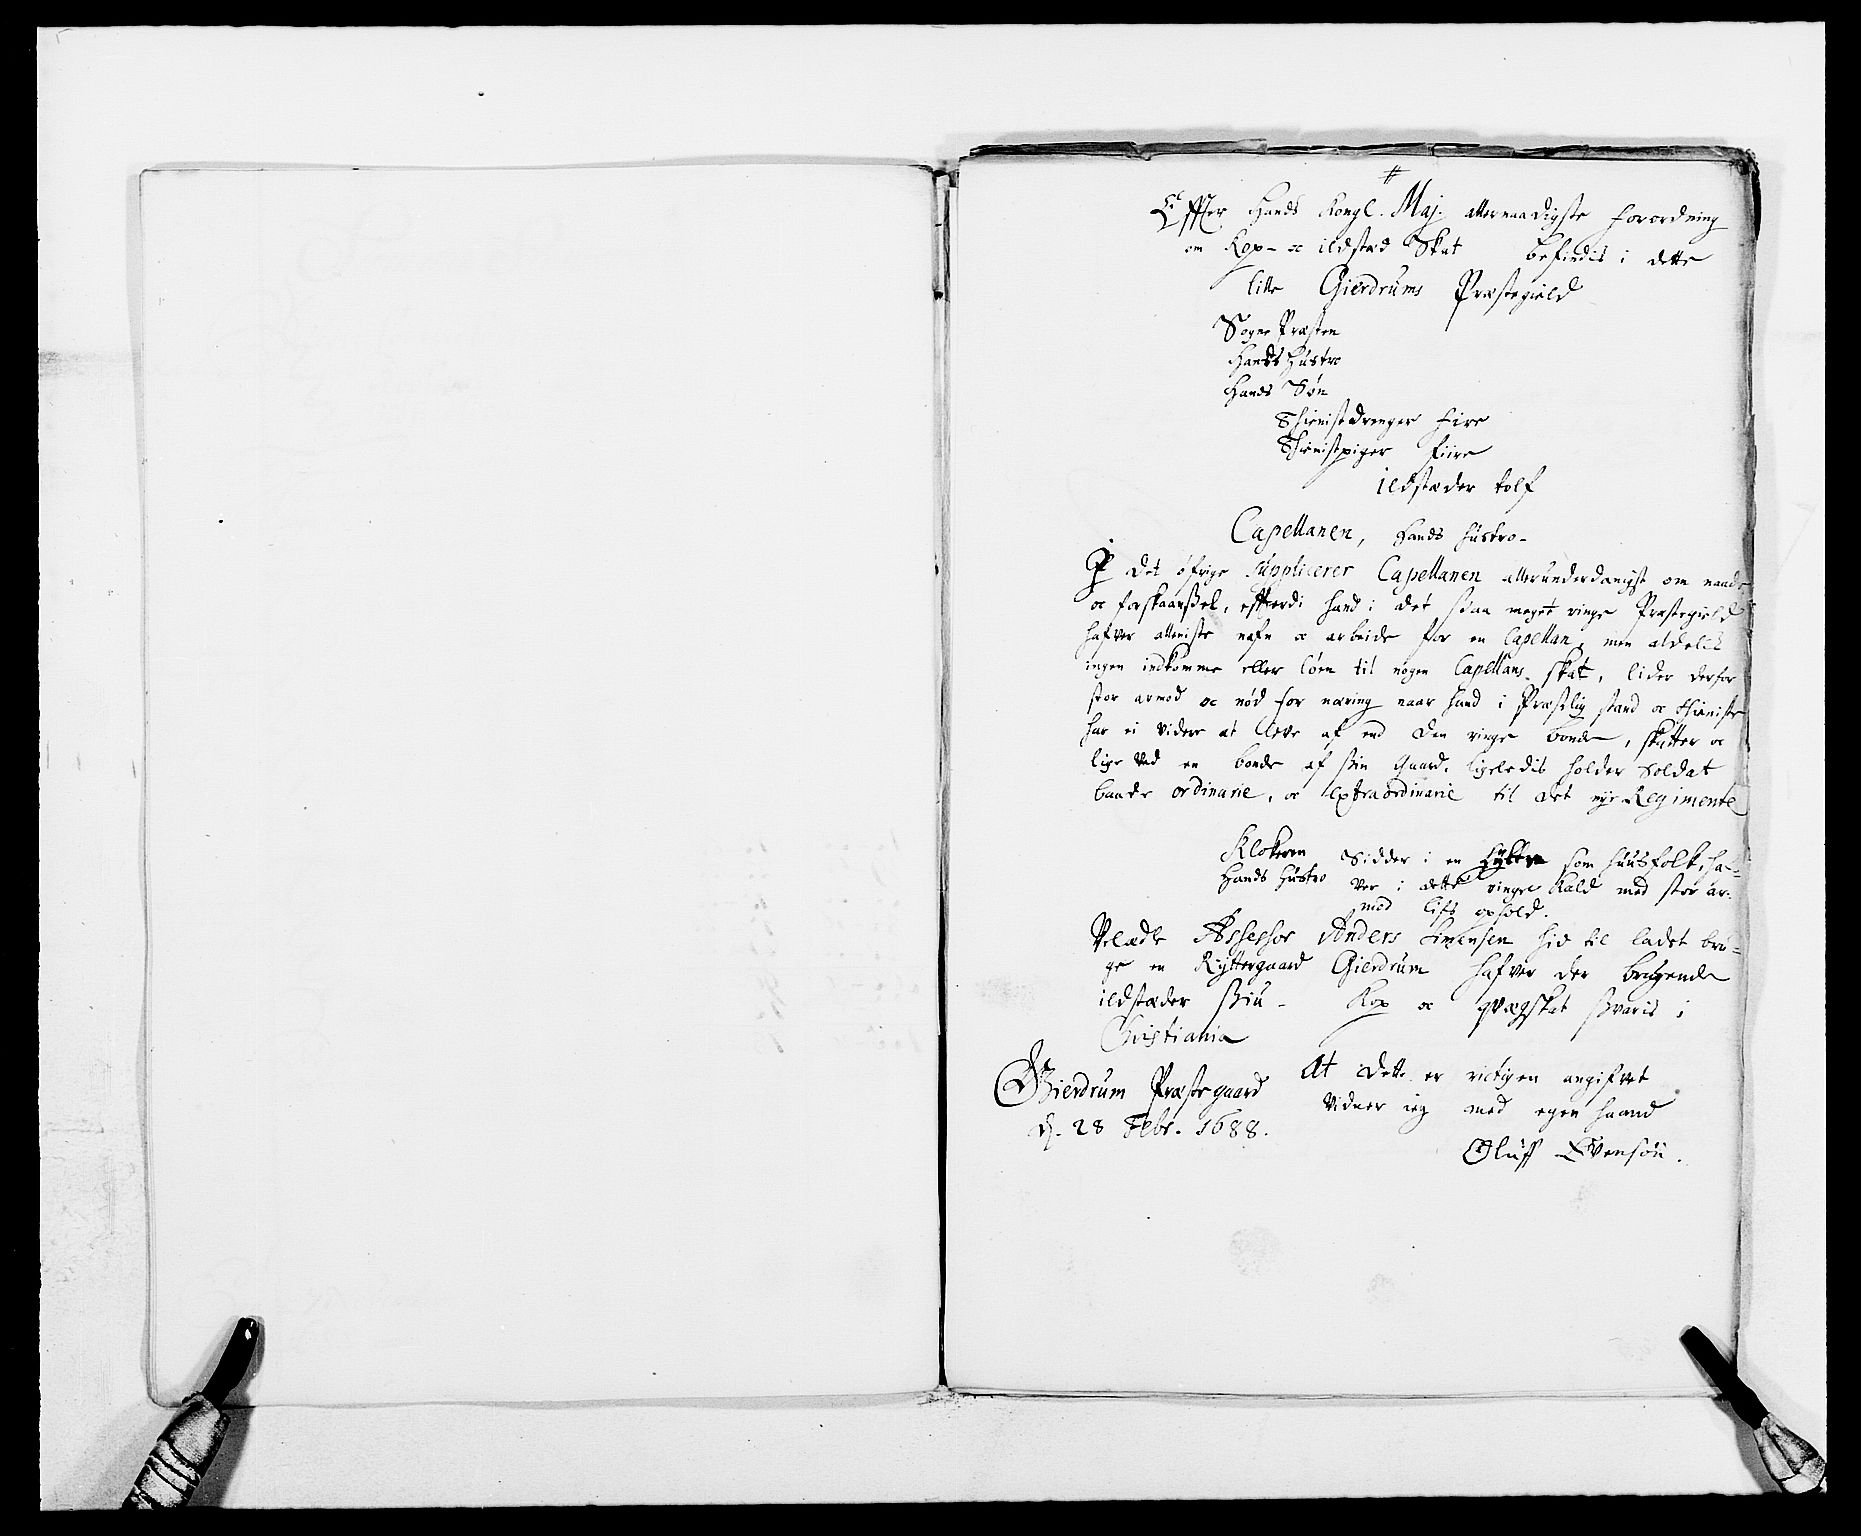 #
Effter Hands Kongl. Maj. allernaadigste forordning
om Kop- oc ildsted Skat befindis i dette
litte Gierdrums Præstegield
Sogne Præsten
Hands Hustro
Hands Søn
Thienistedrenger fire
Thienistpiger fiire
Ildstæder tolf
Capellanen, Hands hustro-
I det øfrige suppliserer Capellanen allerunderdanigst om naade
oc forskaanssel, effterdi hand i det ssaa meget ringe Præstegield
hafver alleniste nafn oc arbeide for en Capellan, men aldelis
ingen indkomme eller løen til nogen Capellans skat, lider derfor
stor armod oc nød for næring naar hand i Præstlig stand oc thieniste
har ei videre at leve af end den ringe bonde, skatter oc
lige ved en bonde af ssin Gaard, ligeledis holder soldat
baade ordinarie, oc extraordinarie til det nye Regimente
Klokeren sidder i en hytte som huusfolk, haf-
Hands hustro ver i dette ringe Kald med stor ar-
mod lifs ophold.
Velædle Assessor Anders Simensen hid til ladet bru-
ge en Ryttergaard Gierdrum hafver der brugende
ildstæder ssiu - Kop oc qvægskat ssvaris i
Christiania
Gierdrum Præstegaard At dette er rictigen angifvet
d. 28 Febr. 1688. vidner ieg med egen haand
Oluff Evensøn.